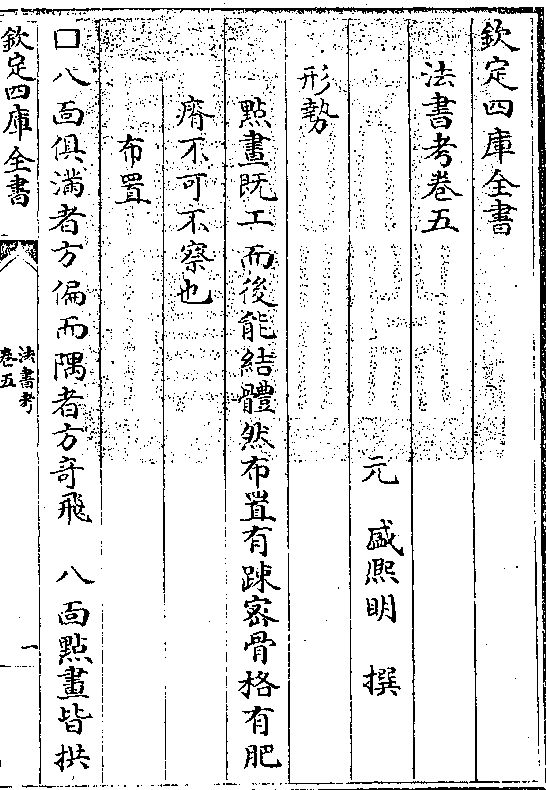 欽定四庫全書
法書考卷五
元　盛熙明　撰
形勢
點畫既工而後能結體然布置有踈宻骨格有肥
瘠不可不察也
布置
口八面俱滿者方偏而隅者方竒飛　八面點畫皆拱
欽定四庫全書
法書考
卷五
一